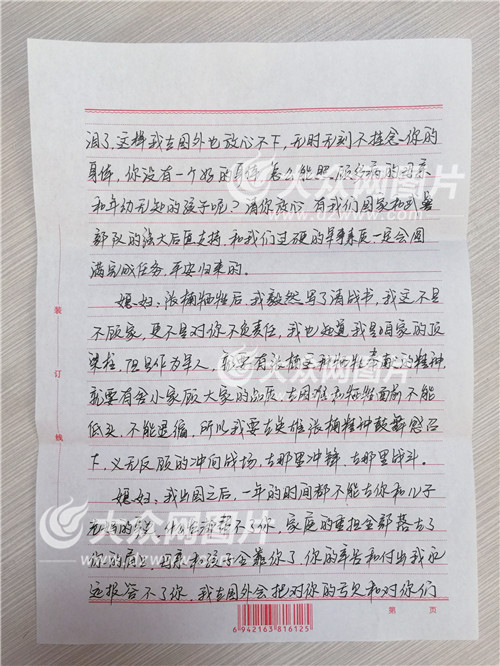 泪了,这样我在国外也放心不下,无时无刻不挂念你的
身体,你没有一个好的身体怎么能照顾给病的母亲
和年幼无知的孩子呢?请你放心,有我们国家和武警
部队的强大后盾支持,和我们过硬的军事素质一定会圆
满完成任务,平安归来的。
媳妇,张楠牺牲后,我毅然写了请战书,我这不是
不顾家,更不是对你不负责任,我也知道我是咱家的顶
梁柱,但是作为军人,就要有张楠这种牺牲奉献的精神,
就要有舍小家顾大家的品质,在困难和牺牲面前不能
低头,不能退缩,所以我要在英雄张楠精神鼓舞感召
下,义无反顾的冲向战场,在那里冲锋,在那里战斗。
媳妇,我出国之后,一年的时间都不能在你和儿子
什么都帮不了你,家庭的重担全部落在了
你的肩上,母亲和孩子全靠你了,你的辛苦和付出我永
远报答不了你,我在国外会把对你的亏欠和对你们
装
订
线
大众网图片
www.dzwww.com
6 942163 816125
第 页